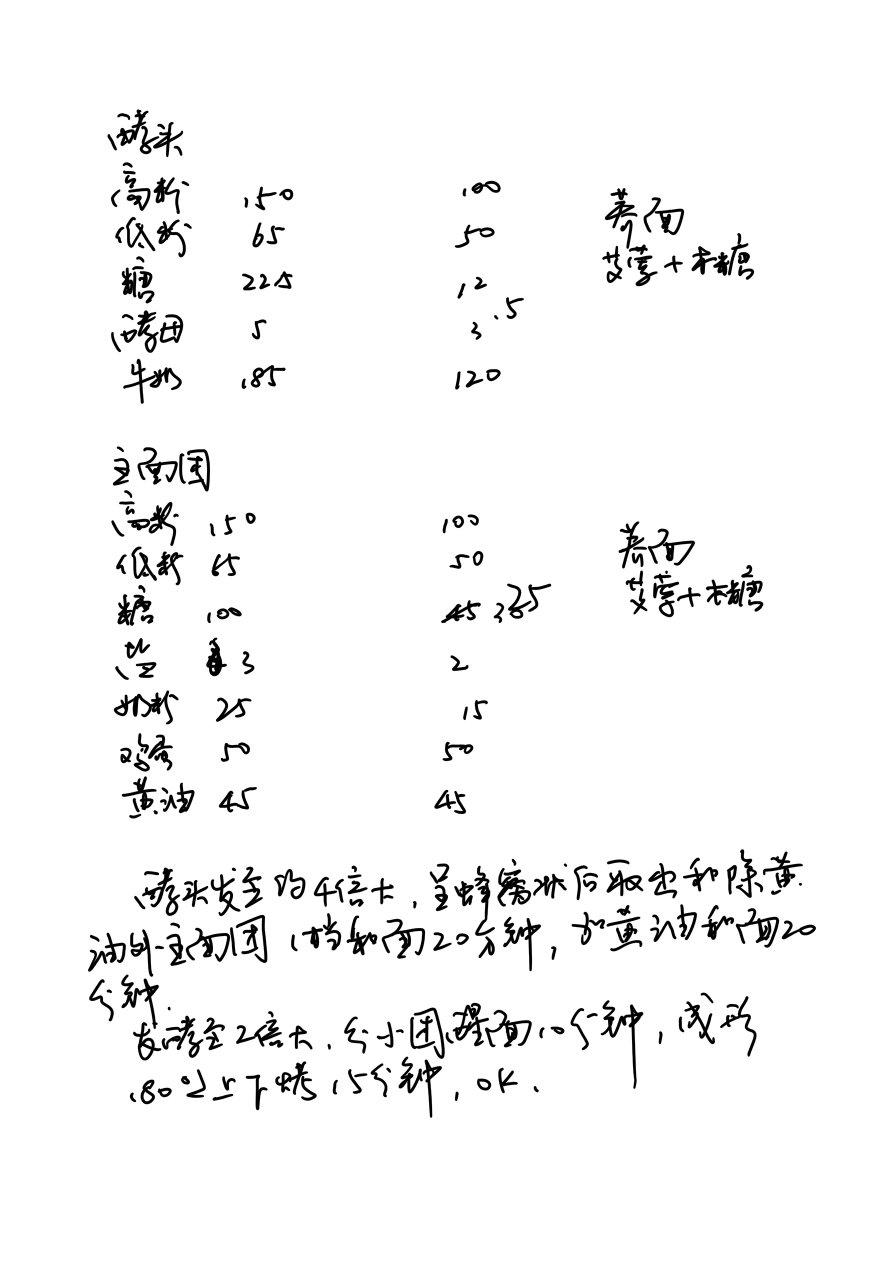 酵头
高粉 150 100
荞面
低粉 65 50
艾草+木糖
糖 225 12
酵母 5 3.5
牛奶 185 120
主面团
高粉 150 100
荞面
低粉 65 50
糖 100 45
盐 3 2
奶粉 25 15
鸡蛋 50 50
黄油 45 45
酵头发至约4倍大,呈蜂窝状后取出和除黄
油外主面团1档和面20分钟,加黄油和面20
分钟.
发酵至2倍大,分小团,醒面10分钟,成形
180℃上下烤15分钟,OK.